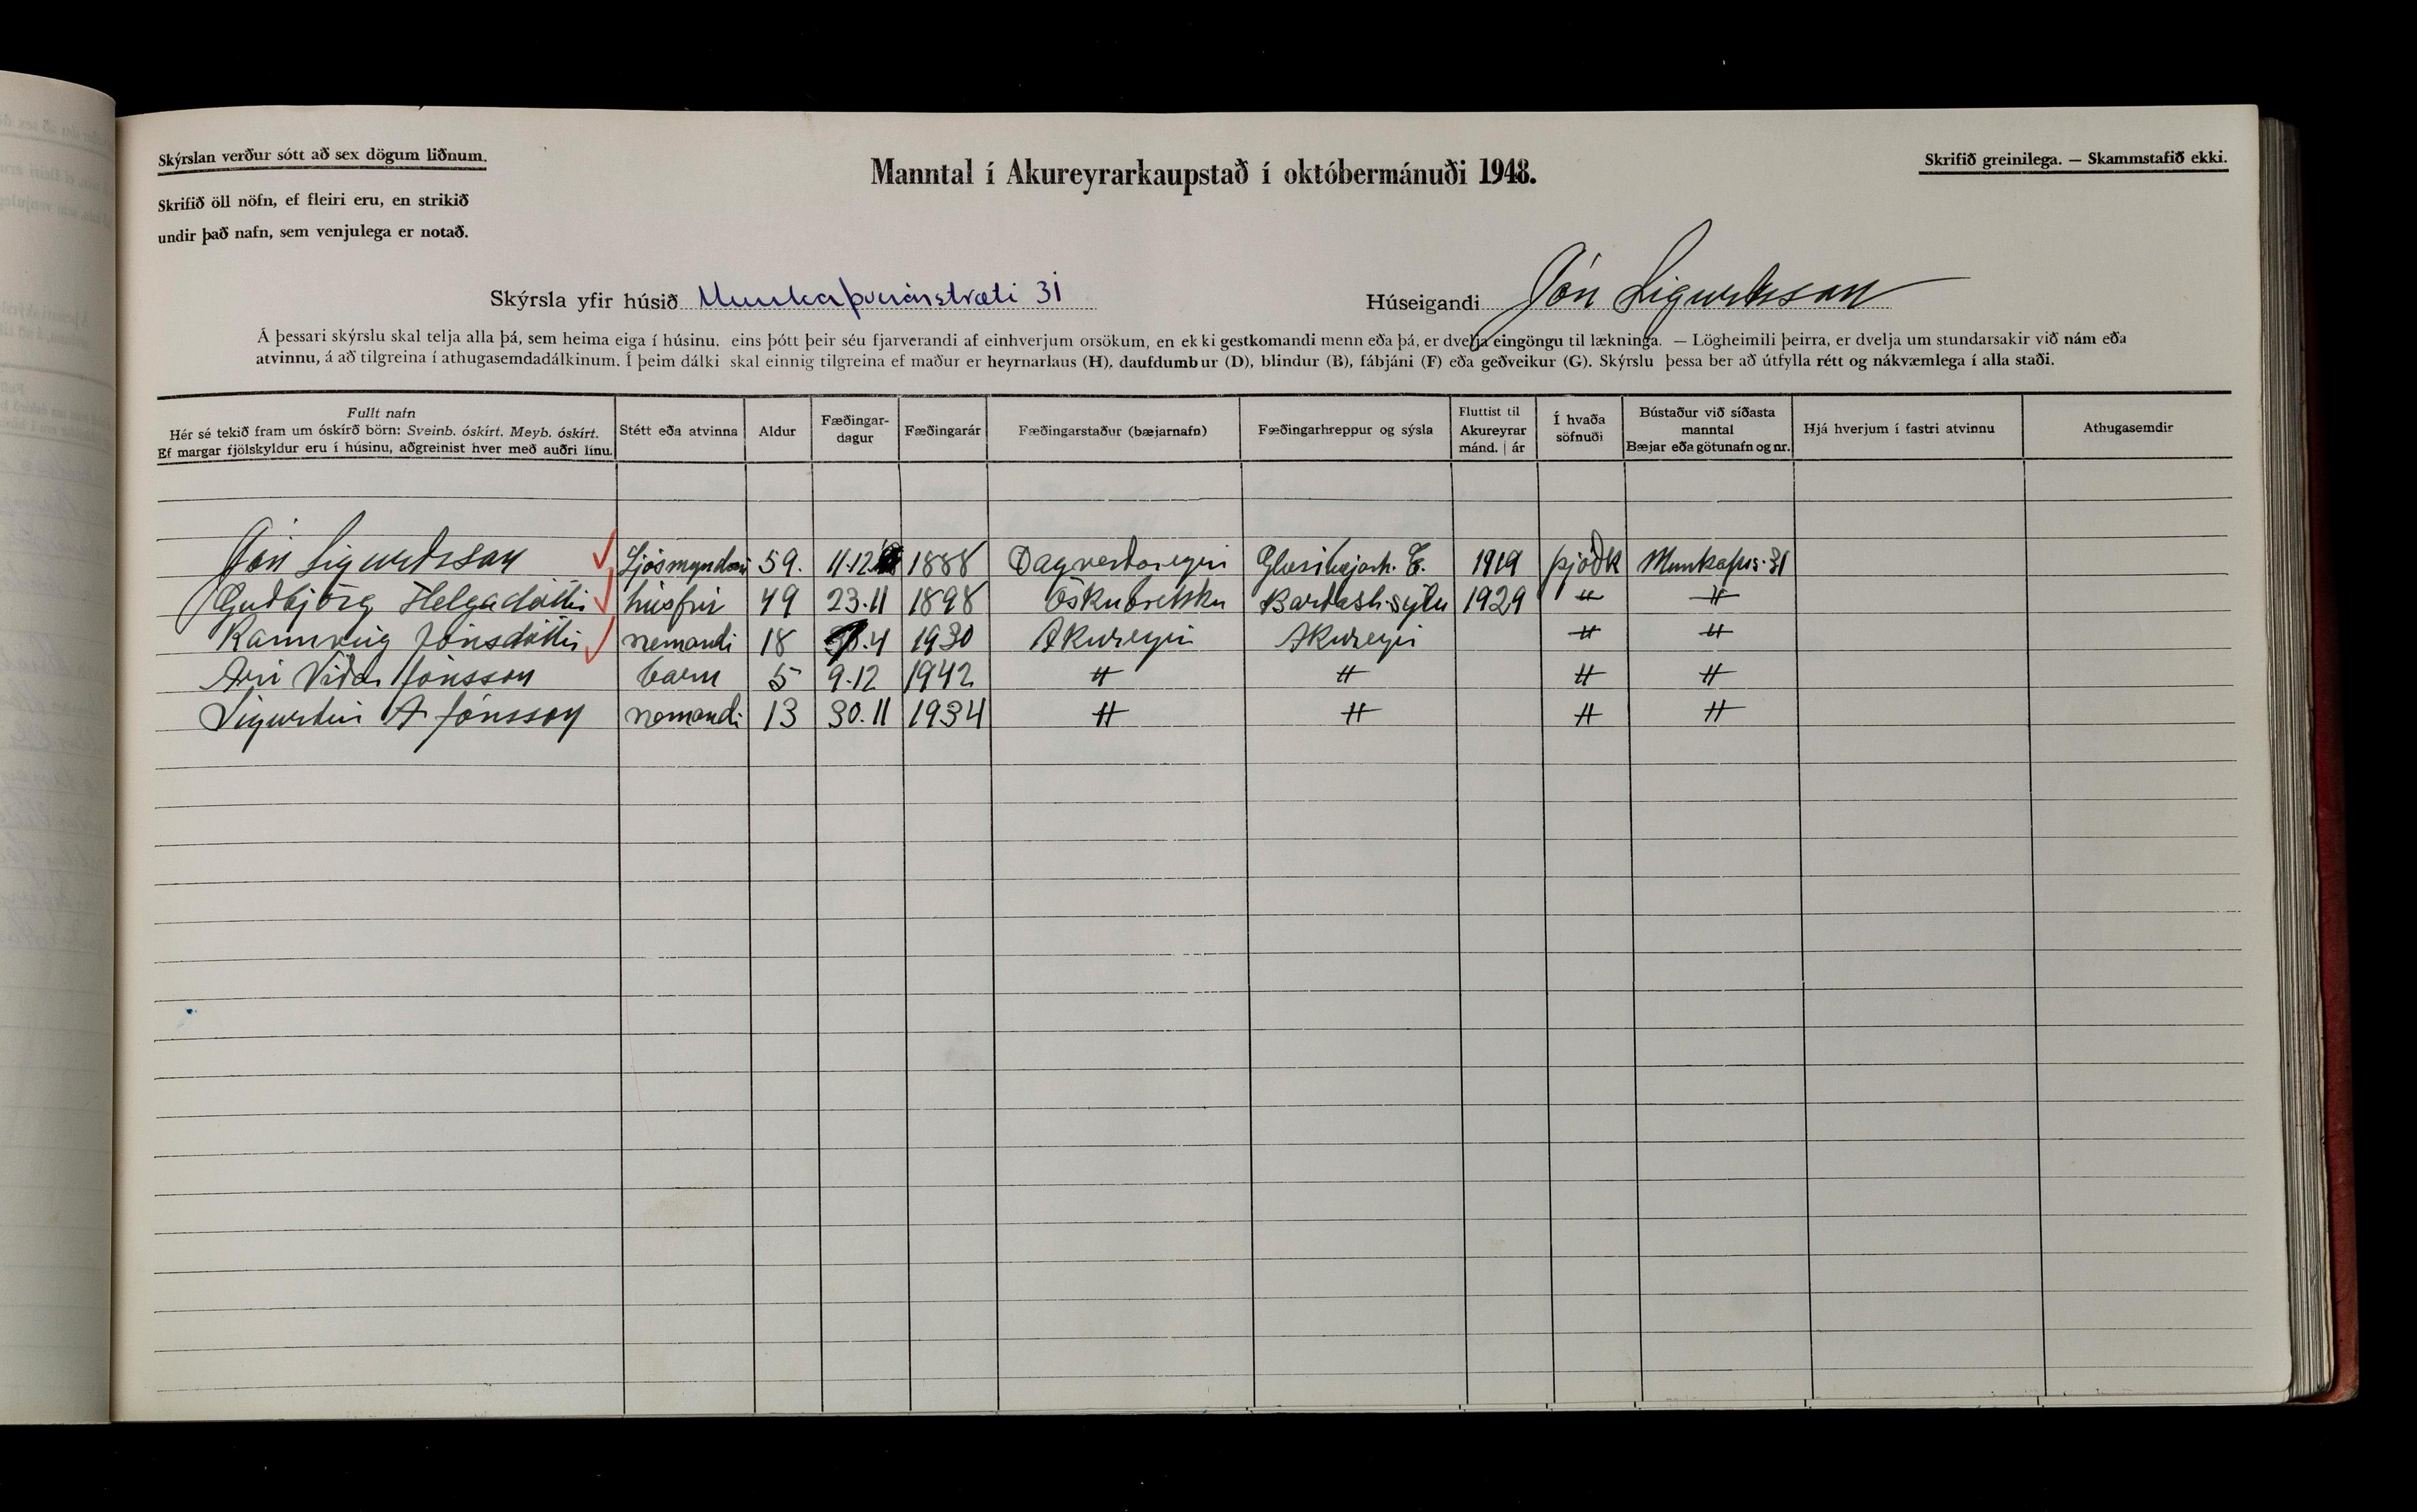 Skýrslan verður sótt að sex dögum liðnum.
Skrifið öll nöfn, ef fleiri eru, en strikið
undir það nafn, sem venjulega er notað.
Manntal í Akureyrarkaupstað í októbermánuði 1948.
Skrifið greinilega. — Skammstafið ekki.
Skýrsla yfir húsið Munkaþverárstræti 31
Húseigandi Jón Sigurðsson
Á þessari skýrslu skal telja alla þá, sem heima eiga í húsinu, eins þótt þeir séu fjarverandi af einhverjum orsökum, en ekki gestkomandi menn eða þá, er dvelja eingöngu til lækninga. — Lögheimili þeirra, er dvelja um stundarsakir við nám eða
atvinnu, á að tilgreina í athugasemdadálkinum. Í þeim dálki skal einnig tilgreina ef maður er heyrnarlaus (H), daufdumbur (D), blindur (B), fábjáni (F) eða geðveikur (G). Skýrslu þessa ber að útfylla rétt og nákvæmlega í alla staði.
Fullt nafn
Hér sé tekið fram um óskírð börn: Sveinb. óskírt. Meyb. óskírt.
Ef margar fjölskyldur eru í húsinu, aðgreinist hver með auðri línu.
Stétt eða atvinna
Aldur
Fæðingar-
dagur
Fæðingarár
Fæðingarstaður (bæjarnafn)
Fæðingarhreppur og sýsla
Fluttist til
Akureyrar
mánd. | ár
Í hvaða
söfnuði
Bústaður við síðasta
manntal
Bæjar eða götunafn og nr.
Hjá hverjum í fastri atvinnu
Athugasemdir
Jón Sigurðsson 59. 11.12 1888 Dagverðareyri Glæsibæjarh. E. 1919 þjóðk
Guðbjörg Helgadóttir húsfrú 49 23.11 1898 1929 〃 〃
Rannveig Jónsdóttir nemandi 18 .4 1930 Akureyri Akureyri 〃 〃
Ari Viðar Jónsson barn 5 9.12 1942 〃 〃 〃 〃
Sigurður A Jónsson nemandi 13 30.11 1934 〃 〃 〃 〃